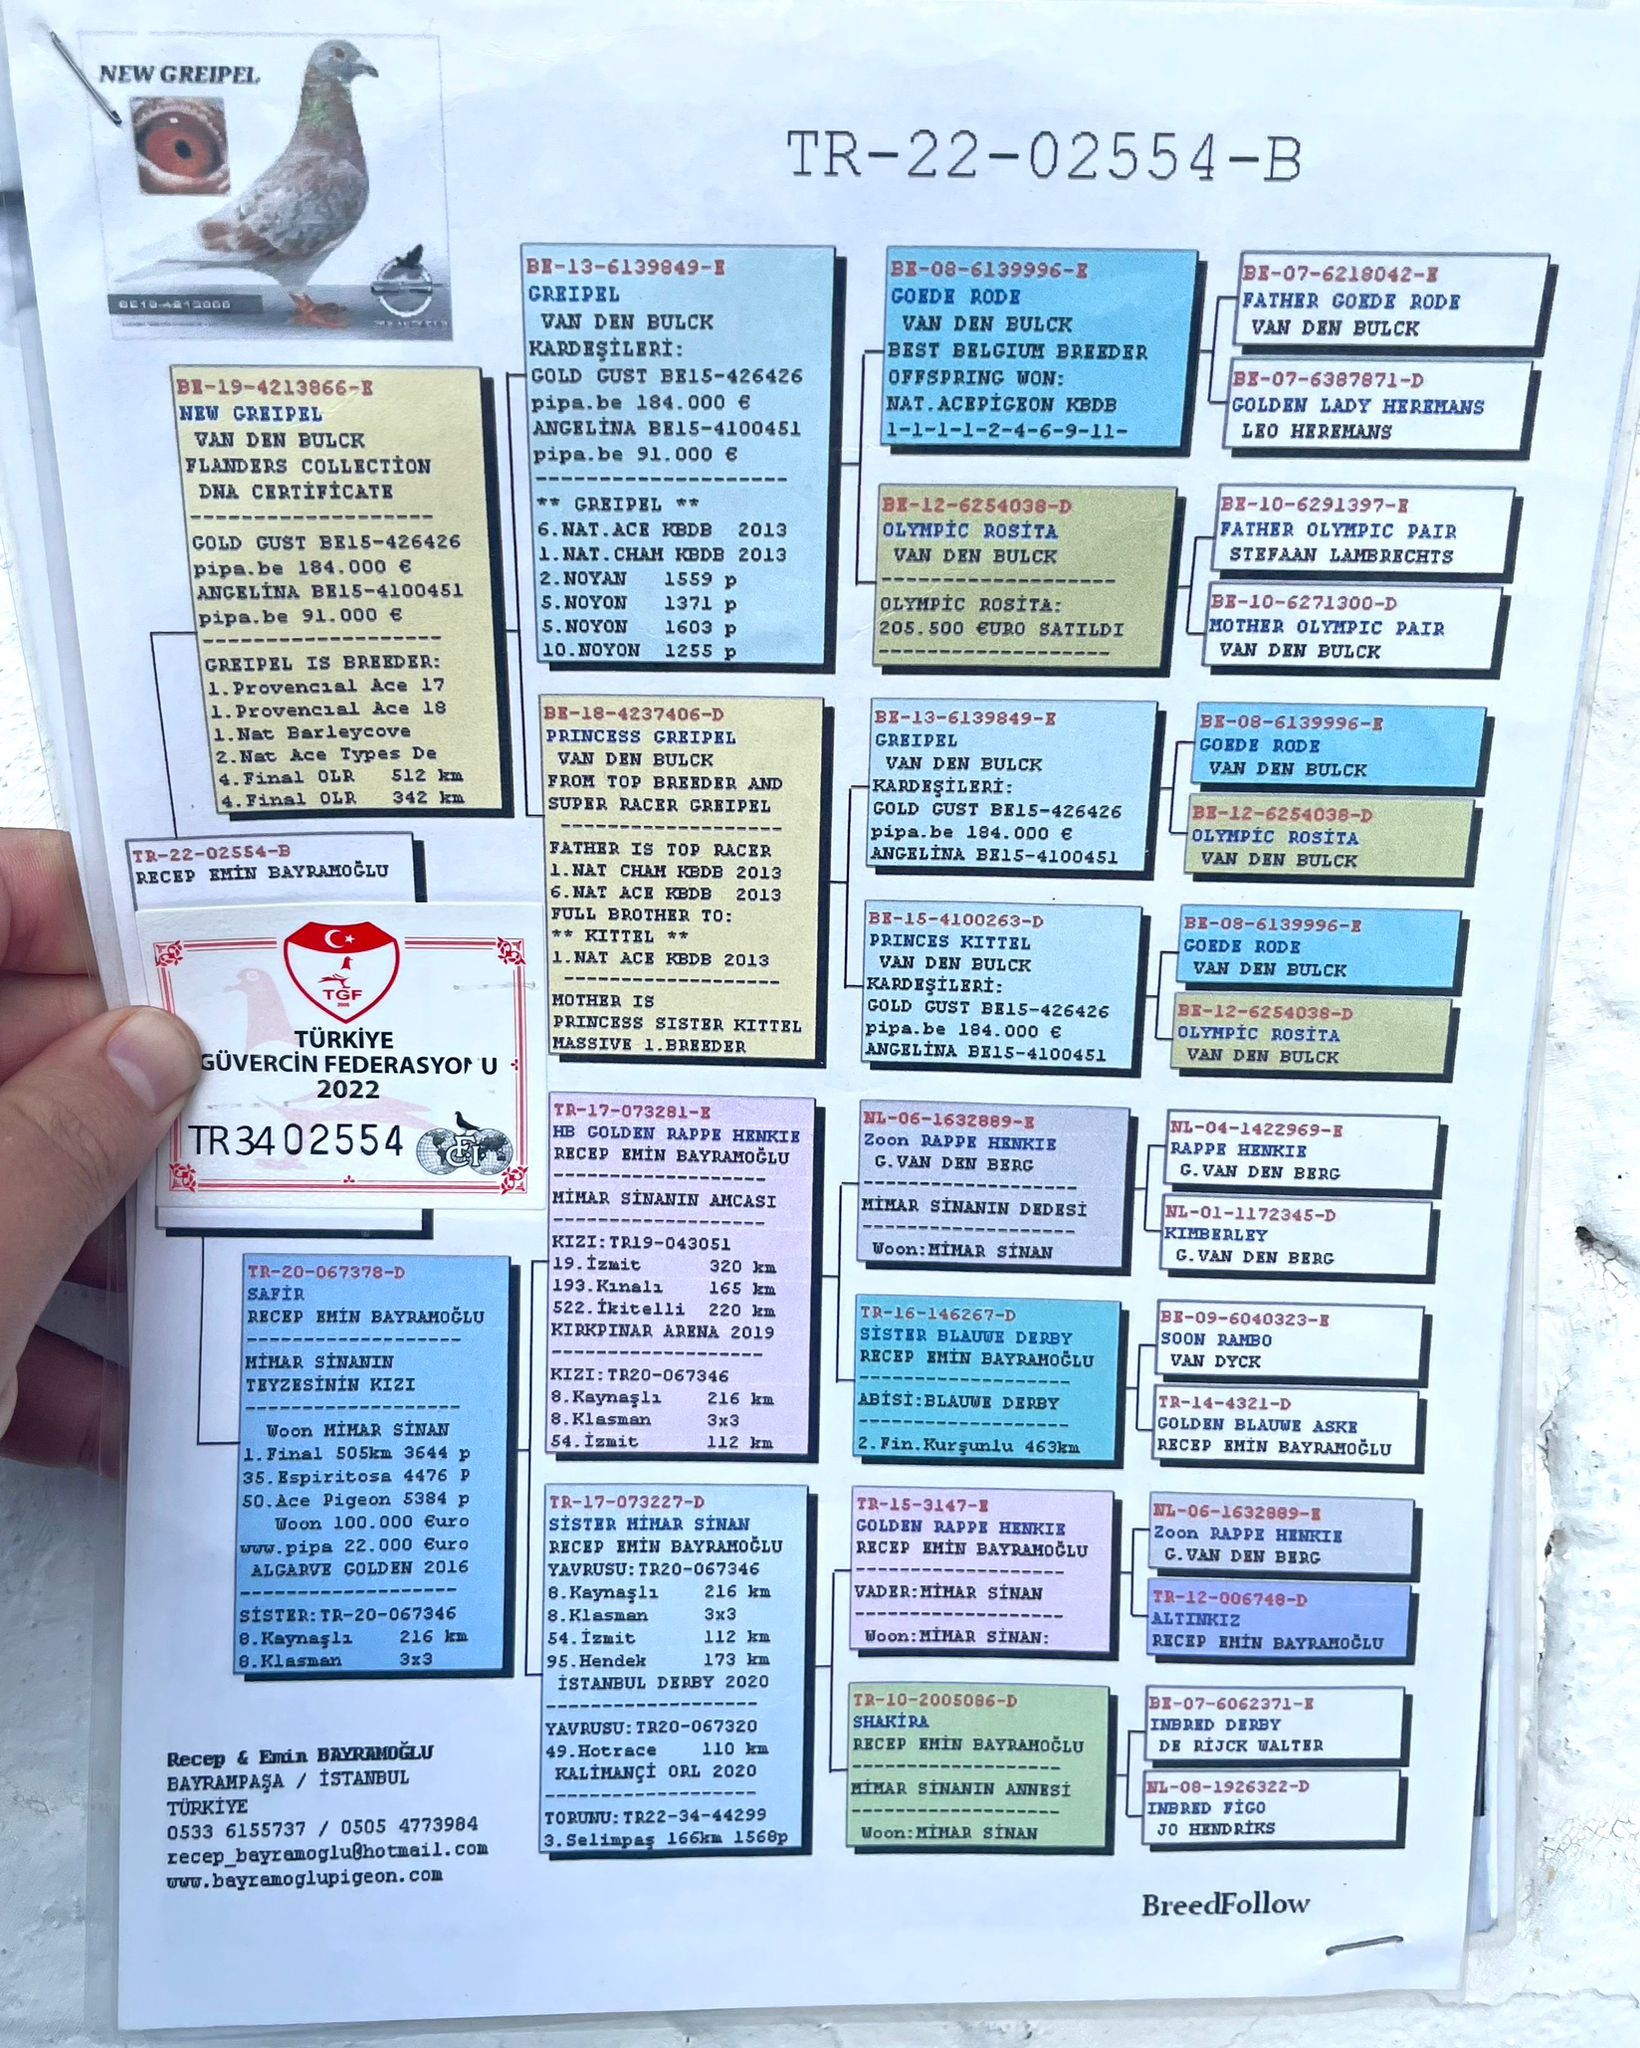 NEW GREIPEL
TR-22-02554-B
BE-19-4213866-E
NEW GREIPEL
VAN DEN BULCK
FLANDERS COLLECTİON
DNA CERTİFİCATE
--------------------
GOLD GUST BE15-426426
pipa.be 184.000 €
ANGELİNA BE15-4100451
pipa.be 91.000 €
--------------------
GREIPEL IS BREEDER:
1.Provencıal Ace 17
1.Provencıal Ace 18
1.Nat Barleycove
2.Nat Ace Types De
4.Final OLR 512 km
4.Final OLR 342 km
TR-22-02554-B
RECEP EMİN BAYRAMOĞLU
TGF
TÜRKİYE
GÜVERCİN FEDERASYONU
2022
TR3402554
FCI
TR-20-067378-D
SAFİR
RECEP EMİN BAYRAMOĞLU
--------------------
MİMAR SİNANIN
TEYZESİNİN KIZI
--------------------
Woon MİMAR SİNAN
1.Final 505km 3644 p
35.Espiritosa 4476 P
50.Ace Pigeon 5384 p
Woon 100.000 €uro
www.pipa 22.000 €uro
ALGARVE GOLDEN 2016
--------------------
SİSTER:TR-20-067346
8.Kaynaşlı 216 km
8.Klasman 3x3
BE-13-6139849-E
GREIPEL
VAN DEN BULCK
KARDEŞİLERİ:
GOLD GUST BE15-426426
pipa.be 184.000 €
ANGELİNA BE15-4100451
pipa.be 91.000 €
--------------------
** GREIPEL **
6.NAT.ACE KBDB 2013
1.NAT.CHAM KBDB 2013
2.NOYAN 1559 p
5.NOYON 1371 p
5.NOYON 1603 p
10.NOYON 1255 p
BE-18-4237406-D
PRINCESS GREIPEL
VAN DEN BULCK
FROM TOP BREEDER AND
SUPER RACER GREIPEL
--------------------
FATHER IS TOP RACER
1.NAT CHAM KBDB 2013
6.NAT ACE KBDB 2013
FULL BROTHER TO:
** KITTEL **
1.NAT ACE KBDB 2013
--------------------
MOTHER IS
PRINCESS SISTER KITTEL
MASSIVE 1.BREEDER
TR-17-073281-E
HB GOLDEN RAPPE HENKIE
RECEP EMİN BAYRAMOĞLU
--------------------
MİMAR SİNANIN AMCASI
--------------------
KIZI:TR19-043051
19.İzmit 320 km
193.Kınalı 165 km
522.İkitelli 220 km
KIRKPINAR ARENA 2019
--------------------
KIZI:TR20-067346
8.Kaynaşlı 216 km
8.Klasman 3x3
54.İzmit 112 km
TR-17-073227-D
SİSTER MİMAR SİNAN
RECEP EMİN BAYRAMOĞLU
YAVRUSU:TR20-067346
8.Kaynaşlı 216 km
8.Klasman 3x3
54.İzmit 112 km
95.Hendek 173 km
İSTANBUL DERBY 2020
--------------------
YAVRUSU:TR20-067320
49.Hotrace 110 km
KALİMANÇİ ORL 2020
--------------------
TORUNU:TR22-34-44299
3.Selimpaş 166km 1568p
BE-08-6139996-E
GOEDE RODE
VAN DEN BULCK
BEST BELGIUM BREEDER
OFFSPRING WON:
NAT.ACEPİGEON KBDB
1-1-1-1-2-4-6-9-11-
BE-12-6254038-D
OLYMPİC ROSİTA
VAN DEN BULCK
--------------------
OLYMPİC ROSİTA:
205.500 €URO SATILDI
--------------------
BE-13-6139849-E
GREIPEL
VAN DEN BULCK
KARDEŞİLERİ:
GOLD GUST BE15-426426
pipa.be 184.000 €
ANGELİNA BE15-4100451
BE-15-4100263-D
PRINCES KITTEL
VAN DEN BULCK
KARDEŞİLERİ:
GOLD GUST BE15-426426
pipa.be 184.000 €
ANGELİNA BE15-4100451
NL-06-1632889-E
Zoon RAPPE HENKIE
G.VAN DEN BERG
--------------------
MİMAR SİNANIN DEDESİ
--------------------
Woon:MİMAR SİNAN
TR-16-146267-D
SİSTER BLAUWE DERBY
RECEP EMİN BAYRAMOĞLU
--------------------
ABİSİ:BLAUWE DERBY
--------------------
2.Fin.Kurşunlu 463km
TR-15-3147-E
GOLDEN RAPPE HENKIE
RECEP EMİN BAYRAMOĞLU
--------------------
VADER:MİMAR SİNAN
--------------------
Woon:MİMAR SİNAN:
TR-10-2005086-D
SHAKİRA
RECEP EMİN BAYRAMOĞLU
--------------------
MİMAR SİNANIN ANNESİ
--------------------
Woon:MİMAR SİNAN
BE-07-6218042-E
FATHER GOEDE RODE
VAN DEN BULCK
BE-07-6387871-D
GOLDEN LADY HEREMANS
LEO HEREMANS
BE-10-6291397-E
FATHER OLYMPIC PAIR
STEFAAN LAMBRECHTS
BE-10-6271300-D
MOTHER OLYMPIC PAIR
VAN DEN BULCK
BE-08-6139996-E
GOEDE RODE
VAN DEN BULCK
BE-12-6254038-D
OLYMPİC ROSİTA
VAN DEN BULCK
BE-08-6139996-E
GOEDE RODE
VAN DEN BULCK
BE-12-6254038-D
OLYMPİC ROSİTA
VAN DEN BULCK
NL-04-1422969-E
RAPPE HENKIE
G.VAN DEN BERG
NL-01-1172345-D
KIMBERLEY
G.VAN DEN BERG
BE-09-6040323-E
SOON RAMBO
VAN DYCK
TR-14-4321-D
GOLDEN BLAUWE ASKE
RECEP EMİN BAYRAMOĞLU
NL-06-1632889-E
Zoon RAPPE HENKIE
G.VAN DEN BERG
TR-12-006748-D
ALTINKIZ
RECEP EMİN BAYRAMOĞLU
BE-07-6062371-E
INBRED DERBY
DE RİJCK WALTER
NL-08-1926322-D
INBRED FİGO
JO HENDRİKS
Recep & Emin BAYRAMOĞLU
BAYRAMPAŞA / İSTANBUL
TÜRKİYE
0533 6155737 / 0505 4773984
recep_bayramoglu@hotmail.com
www.bayramoglupigeon.com
BreedFollow